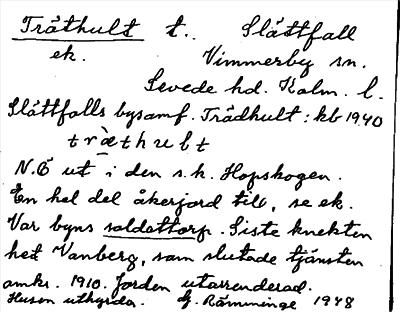 Tråthult t. Slättfall
ek. Vimmerby sn.
Sevede hd. Kalm. l.
Slättfalls bysamf. Trådhult: kb 1940
træthult
N.Ö ut i den s.k. Hopskogen.
En hel del åkerjord till, se ek.
Var byns soldattorp. Siste knekten
het Vanberg, som slutade tjänsten
omkr. 1910. Jorden utarrenderad.
Husen uthyrda. G. Rämminge 1948